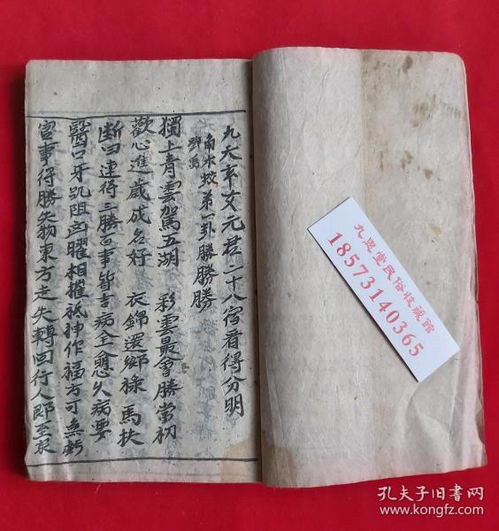 九天玄女元君二十八宿看得分明
角木蛟第一卦勝勝勝
鄧禹
獨上青雲駕五湖 彩雲最會勝當初
歡心進歲成名好 衣錦還鄉祿馬扶
斷曰連得三勝百事皆吉病全愈久病要
醫口牙訊阻凶曜相摧祗神作福方可無虧
官事得勝失物東方走失轉回行人即至求
九思堂民俗收藏館
18573140365
孔夫子旧书网
www.kongfz.com